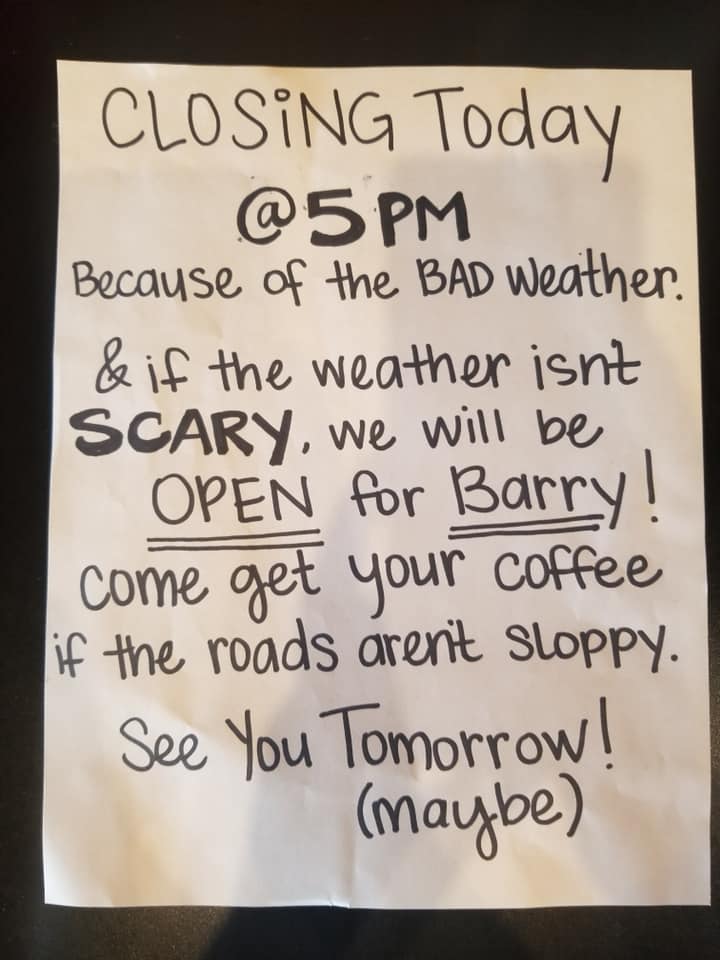 CLOSiNG Today
@5PM
Because of the BAD Weather.
& if the weather isnt
SCARY, we will be
OPEN for Barry!
Come get your coffee
if the roads aren't SLOPPY.
See You Tomorrow!
(maybe)